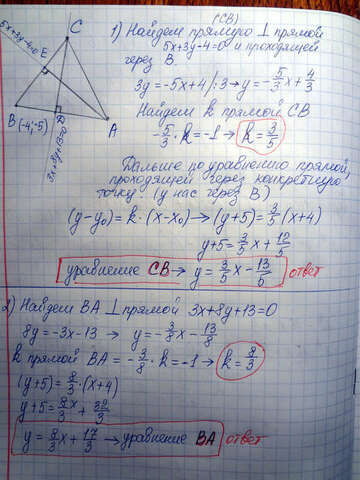 (CB)
1) Найдем прямую ⊥ прямой
5x+3y-4=0 и проходящей
через B
3y = -5x+4 /:3 → y = -5/3 x + 4/3
Найдем k прямой CB
-5/3 · k = -1 → k = 3/5
Дальше по уравнению прямой,
проходящей через конкретную
точку. (у нас через B)
(y-y₀) = k · (x-x₀) → (y+5) = 3/5 (x+4)
y+5 = 3/5 x + 12/5
уравнение CB → y = 3/5 x - 13/5 ответ
5x+3y-4=0
C
E
B (-4;-5)
D
A
3x+8y+13=0
2) Найдем BA ⊥ прямой 3x+8y+13=0
8y = -3x-13 → y = -3/8 x - 13/8
k прямой BA = -3/8 · k = -1 → k = 8/3
(y+5) = 8/3 · (x+4)
y+5 = 8/3 x + 32/3
y = 8/3 x + 17/3 → уравнение BA ответ